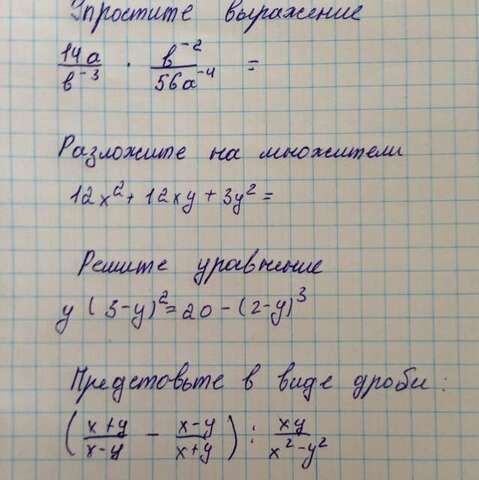 Упростите выражение
14a/b⁻³ · b⁻²/56a⁻⁴ =
Разложите на множители
12x² + 12xy + 3y² =
Решите уравнение
y(3-y)² = 20 - (2-y)³
Предстовьте в виде дроби:
((x+y)/(x-y) - (x-y)/(x+y)) : xy/(x²-y²)